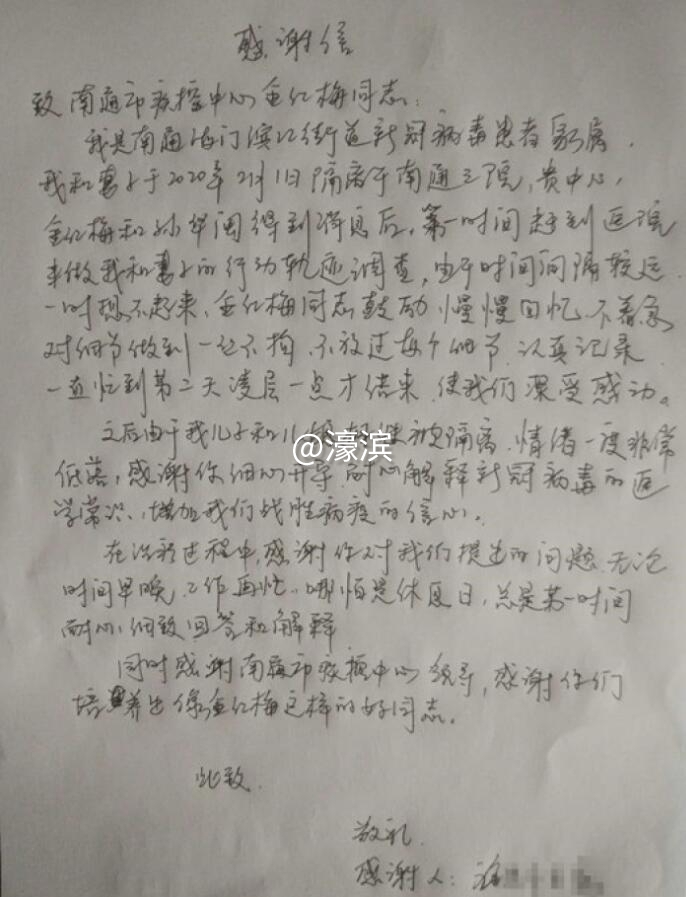 感谢信
致南通市疾控中心金红梅同志：
我是南通海门滨江街道新冠病毒患者家属，
我和妻子于2020年2月1日隔离于南通三院，贵中心，
金红梅和孙华闽得到消息后，第一时间赶到医院
来做我和妻子的行动轨迹调查，由于时间间隔较远
一时想不起来，金红梅同志鼓励慢慢回忆不着急
对细节做到一丝不拘，不放过每个细节，认真记录
一直忙到第二天凌层一点才结束，使我们深受感动。
之后由于我儿子和儿被隔离，情绪一度非常
低落，感谢你细心开导，耐心解释新冠病毒的医
学常识，增加我们战胜病疫的信心。
在治疗过程中，感谢你对我们提出的问题，无论
时间早晚，工作再忙，哪怕是休息日，总是第一时间
耐心，细致回答和解释
同时感谢南通市疾控中心领导，感谢你们
培养出像金红梅这样的好同志。
此致
敬礼
感谢人：
@濠滨